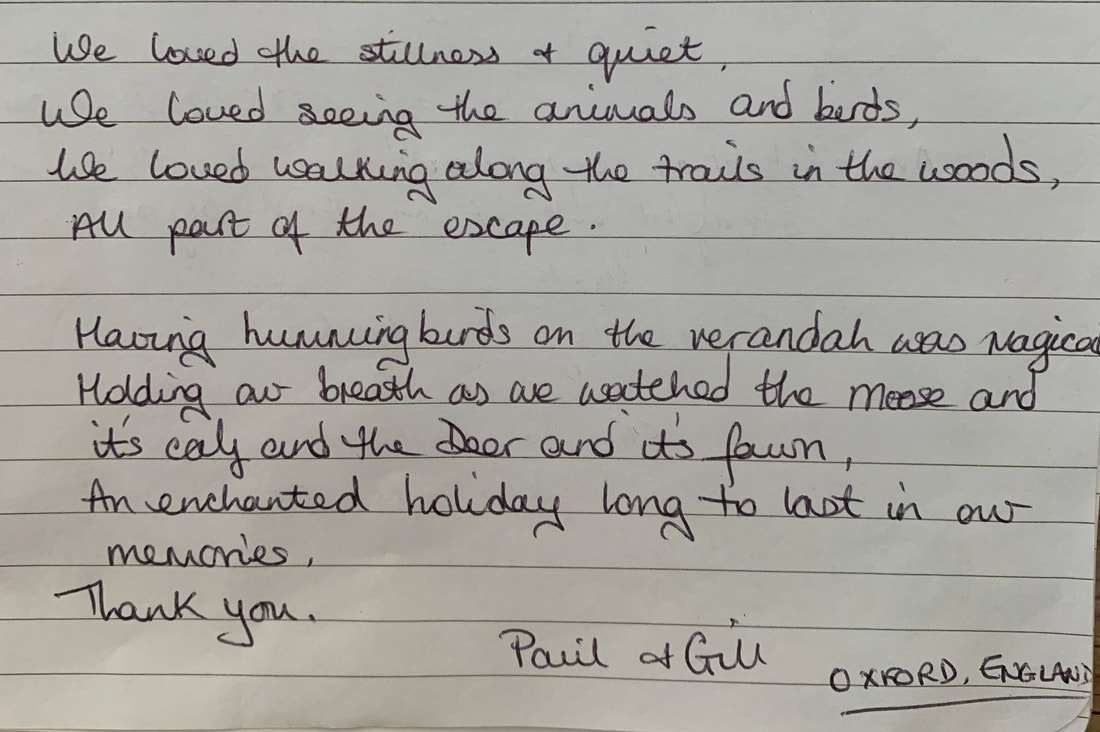 We loved the stillness & quiet,
We loved seeing the animals and birds,
We loved walking along the trails in the woods,
All part of the escape.
Having hummingbirds on the verandah was magical
Holding our breath as we watched the moose and
it's calf and the Deer and it's fawn,
An enchanted holiday long to last in our
memories.
Thank you.
Paul & Gill
OXFORD, ENGLAND